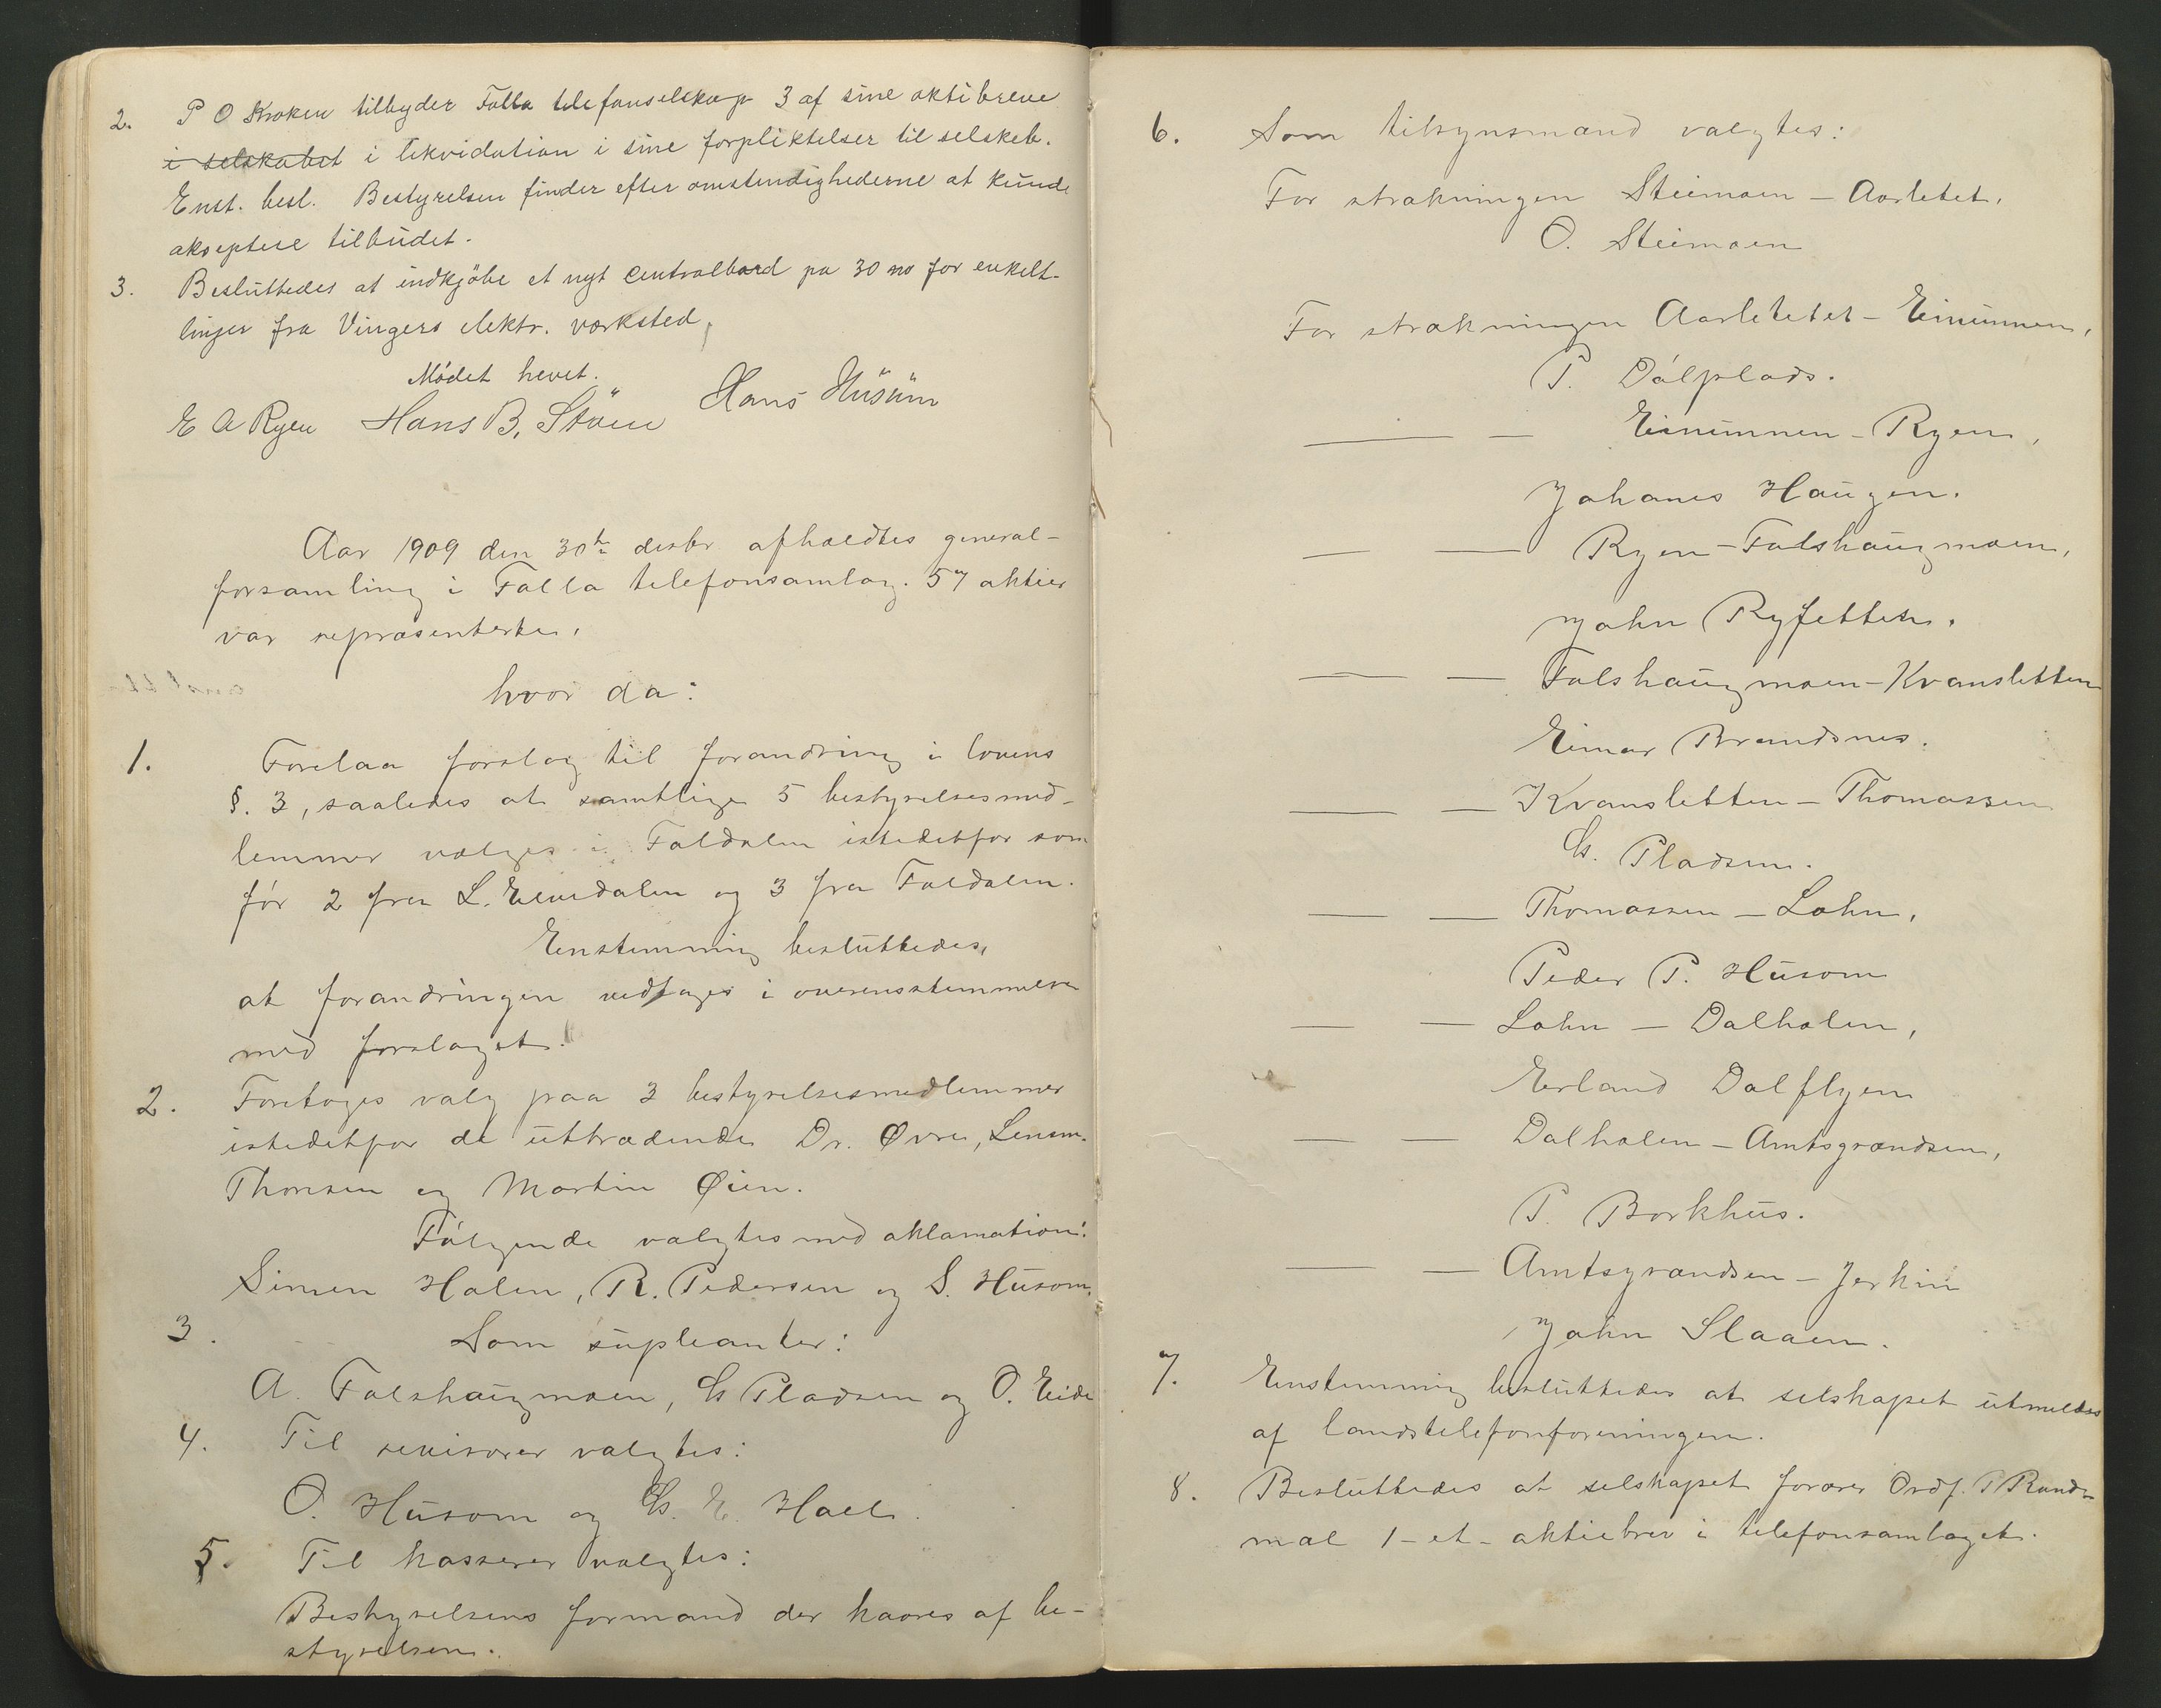 2. P O Kroken tilbyder Folla telefonselskap 3 af sine aktibreve
i selskabet i likvidation i sine forpliktelser til selskab.
Enst. besl. Bestyrelsen finder efter omstendighederne at kunde
akseptere tilbudet.
3. Besluttedes at indkjöbe et nyt centralbord pa 30 no for enkelt-
linjer fra Vingers elektr. værksted,
Mødet hevet.
E A Ryen Hans B. Stöen Hans Husum
Aar 1909 den 30te desbr afholdtes general-
forsamling i Folla telefonsamlag. 57 aktier
var repræsenterte.
hvor da:
1. Forelaa forslag til forandring i lovens
§. 3, saaledes at samtlige 5 bestyrelsesmed-
lemmer vælges i Foldalen istedetfor som
før 2 fra L. Elvedalen og 3 fra Foldalen.
Enstemmig besluttedes,
at forandringen vedtages i overensstemmelse
med forslaget.
2. Foretoges valg paa 3 bestyrelsesmedlemmer
istedetfor de uttrædende Dr. Øvre, Lensm.
Thoresen og Martin Øien.
Følgende valgtes med aklamation:
Simen Holen, R. Pedersen og S. Husom.
3. Som supleanter:
A. Folshaugmoen, Es Pladsen og O. Eide
4. Til revisorer valgtes:
O. Husom og Es. E. Hael.
5. Til kasserer valgtes:
Bestyrelsens formand der kaares af be-
styrelsen.
6. Som tilsynsmænd valgtes:
For strækningen Steimoen - Aarletet,
O. Steimoen
For strækningen Aarletetet - Einunnen,
P. Dølplads.
— — Einunnen - Ryen,
Johanes Haugen.
— — Ryen - Folshaugmoen,
John Ryfetten.
— — Folshaugmoen - Kvansletten
Eimar Brandsnes.
— — Kvansletten - Thomassen
Es. Pladsen.
— — Thomassen - Lohn,
Peder P. Husom
— — Lohn - Dalholen,
Erland Dalflyen
— — Dalholen - Amtsgrændsen,
P. Borkhus.
— — Amtsgrændsen - Jerkin
John Slaaen.
7. Enstemmig besluttedes at selskapet utmeldes
af landstelefonforeningen.
8. Besluttedes at selskapet forærer Ordf. P Rands-
mæl 1 - et - aktiebrev i telefonsamlaget.